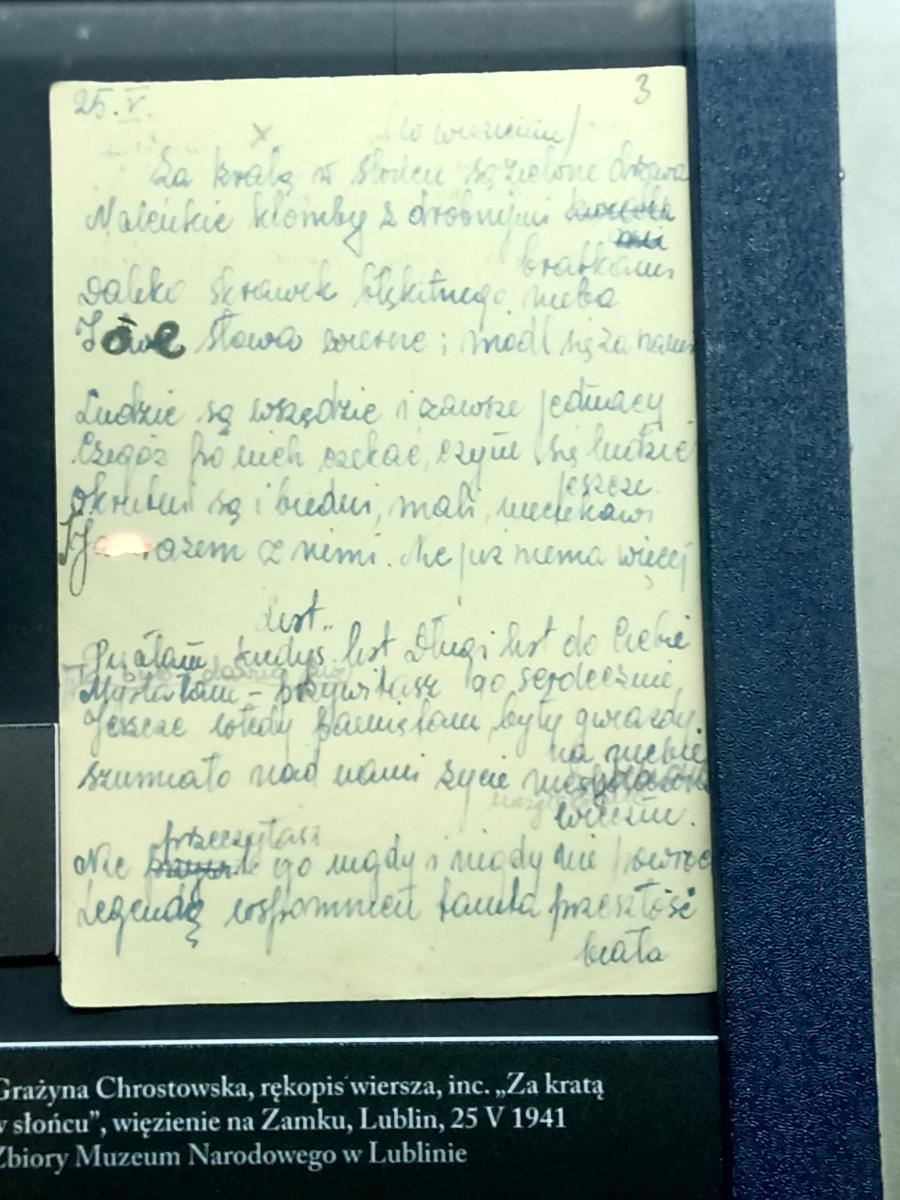 25.V.
3
x
(w więzieniu)
Za kratą w słońcu są zielone drzewa
Maleńkie klomby z drobnymi
bratkami
Daleko skrawek błękitnego nieba
I owe słowa wierne; módl się za nami
Ludzie są wszędzie i zawsze jednacy
Czegóż po nich czekać, czym się łudzić
jeszcze.
Okrutni są i biedni, mali, nieciekawi
I Ja razem z nimi. Nic już niema więcej
List..
Pisałam kiedyś list Długi list do Ciebie
Myślałam – przywitasz go serdecznie,
Jeszcze wtedy pamiętam, były gwiazdy
na niebie
Szumiało nad nami życie
wieczne.
przeczytasz
Nie go nigdy i nigdy nie
Legendą wspomnień tamta przeszłość
biała
Grażyna Chrostowska, rękopis wiersza, inc. „Za kratą
w słońcu”, więzienie na Zamku, Lublin, 25 V 1941
Zbiory Muzeum Narodowego w Lublinie